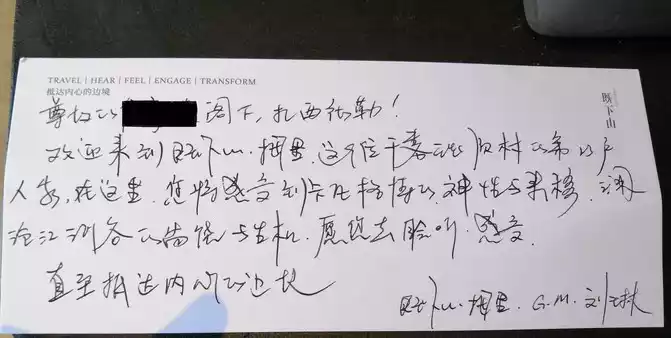 TRAVEL | HEAR | FEEL | ENGAGE | TRANSFORM
抵达内心的边境
既下山
尊敬的 阁下,扎西德勒!
欢迎来到既下山·梅里.这个位于雾浓顶村的第 户
人家,在这里.您将感受到卡瓦格博的神性与 .澜
沧江河谷的 与生机.愿您去聆听.感受.
直至抵达内心的边境
既下山·梅里. G.M. 刘